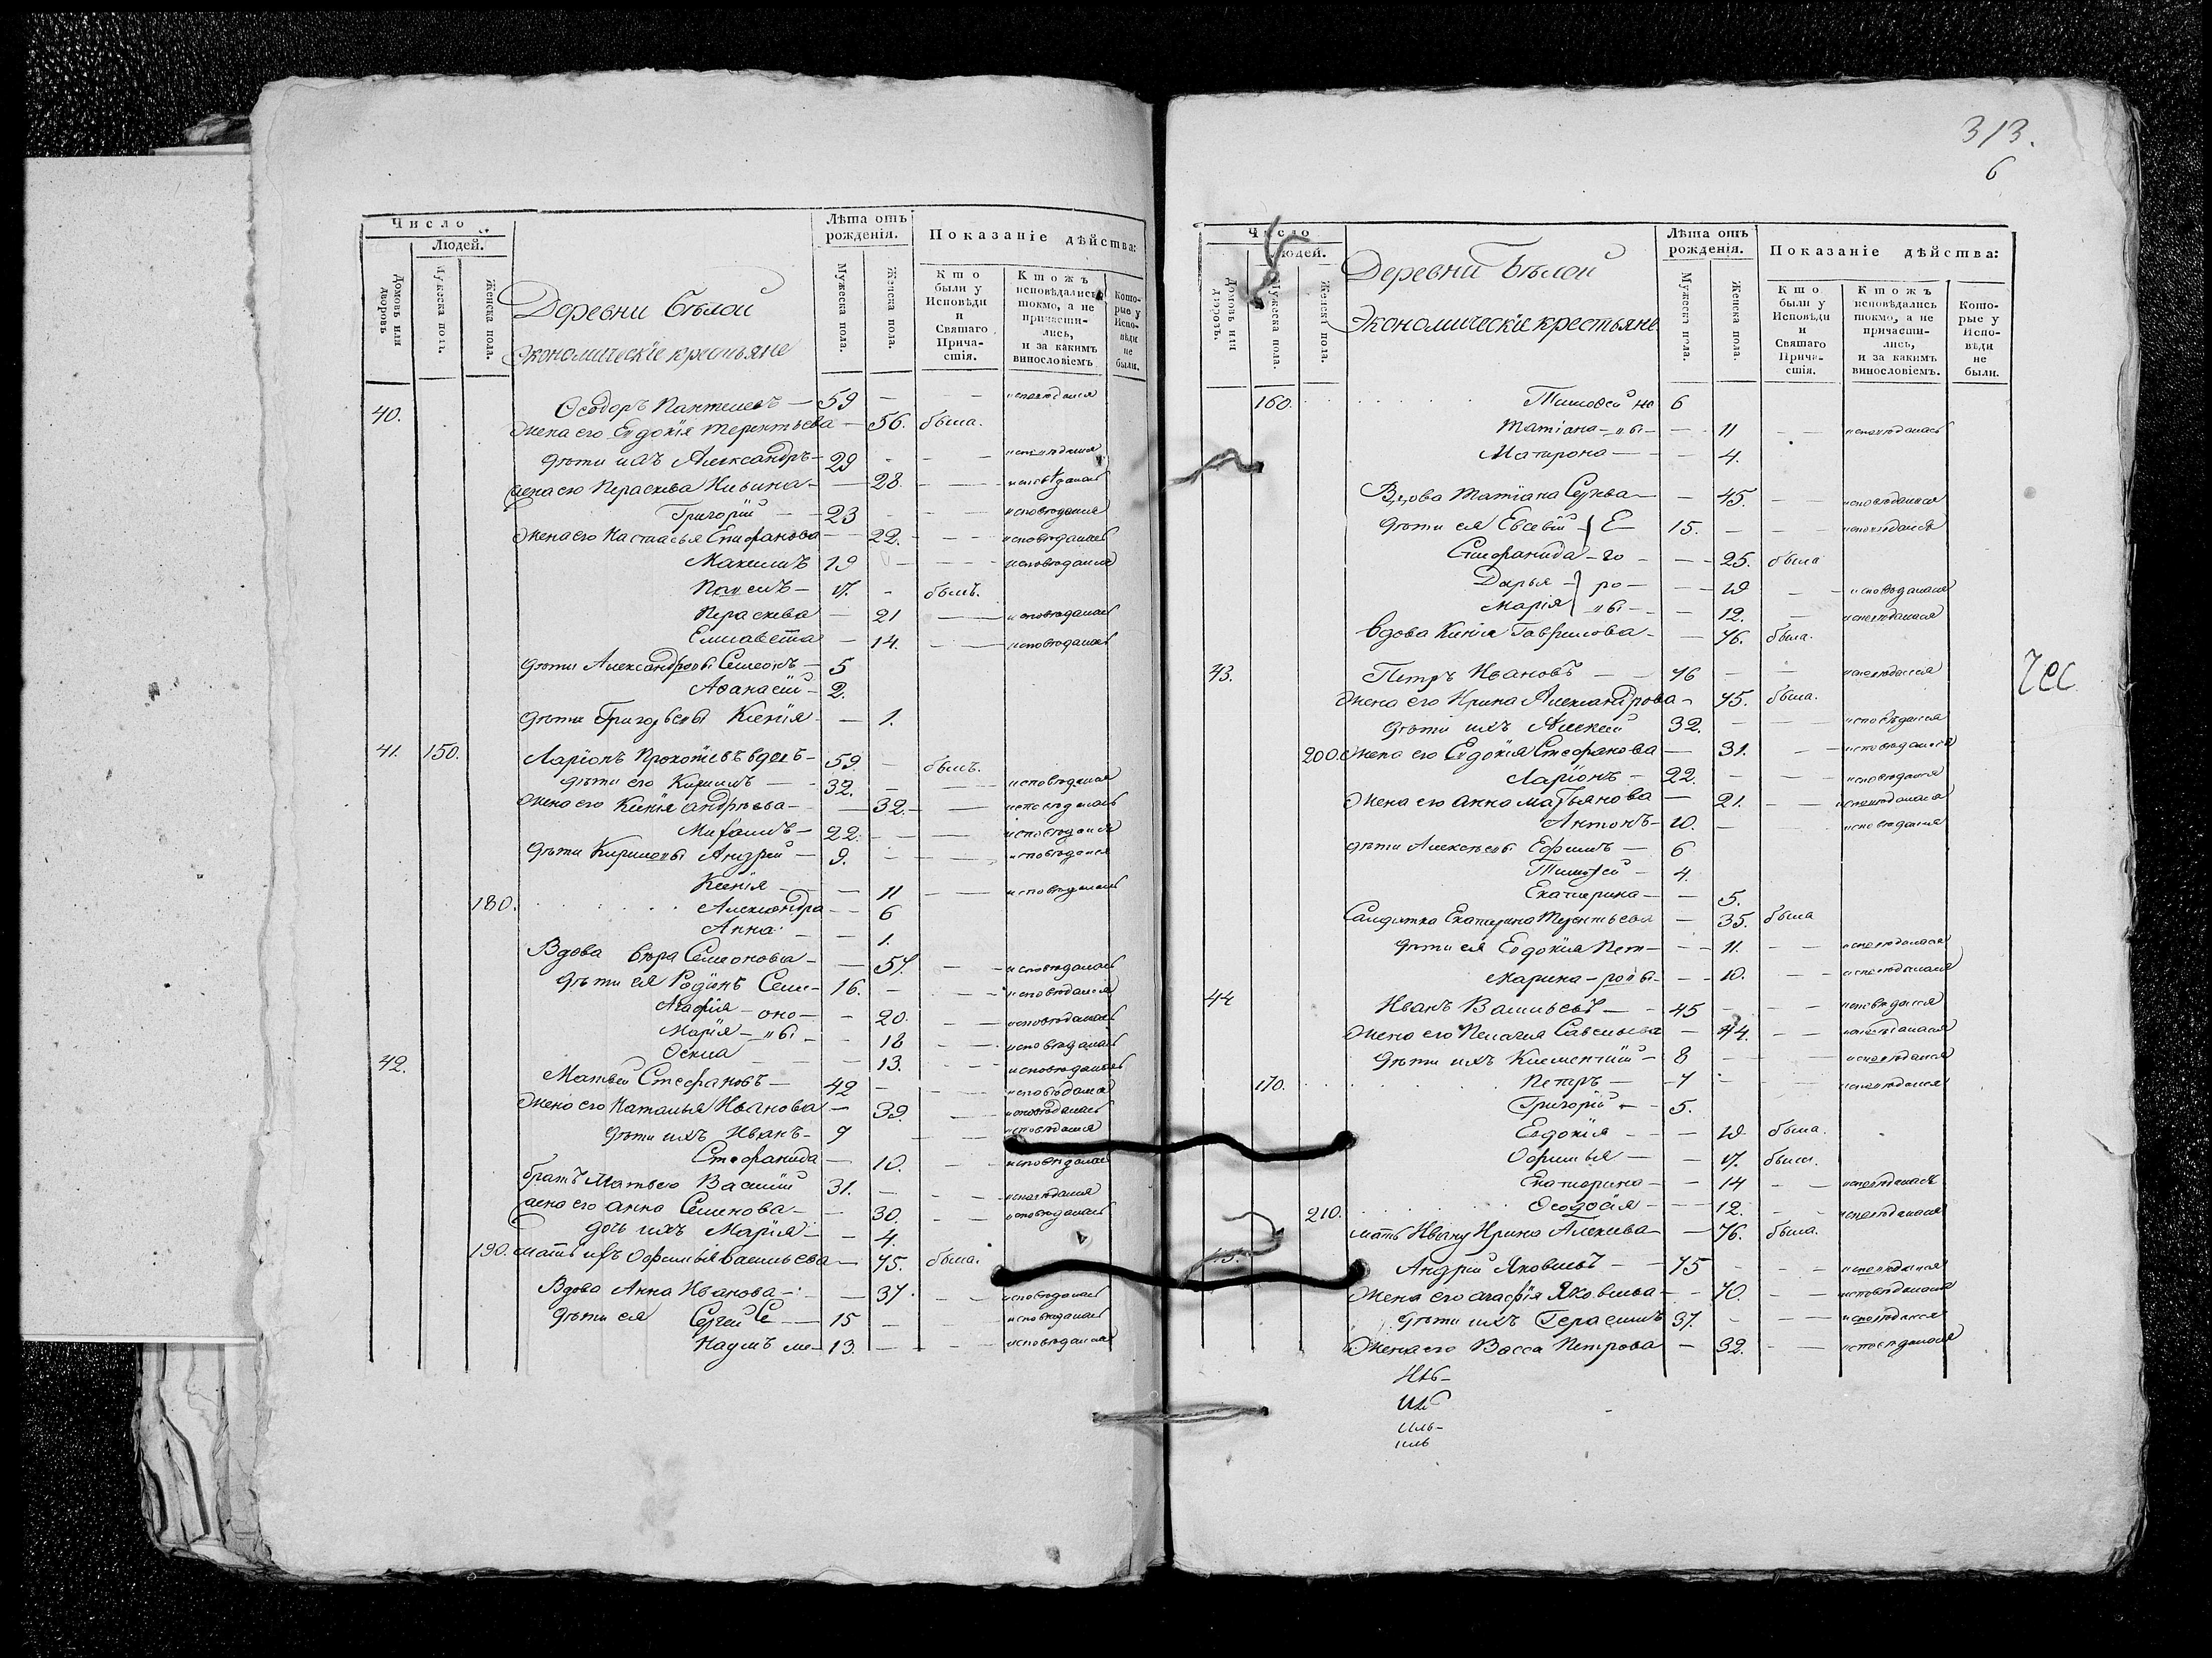 Число
Людей.
Домовъ или дворовъ
Мужеска пола.
Женска пола.
Деревни Бѣлой
Экономическіе крестьяне
Лѣта отъ рожденія.
Мужеска пола.
Женска пола.
Показаніе дѣйства:
Кто были у Исповѣди и Святаго Причастія.
Ктожъ исповѣдались токмо, а не причастились, и за какимъ винословіемъ
Которые у Исповѣди не были.
40. Ѳеодоръ Пантелеевъ — 59 — — исповѣдался
Жена его Евдокія Терентьева — 56. была.
дѣти ихъ Александръ — 29 — — исповѣдался
жена его Параскева Ильина — — 28 — — исповѣдалась
Григорій — 23 — — исповѣдался
Жена его Настасья Епифанова — 22. — — исповѣдалась
Максимъ 19 — — исповѣдался
— 17. — былъ.
Параскева — 21 — исповѣдалась
Елисавета — 14. — исповѣдалась
дѣти Александровы Симеонъ — 5
Аѳанасій — 2.
дѣти Григорьевы Ксенія — — 1.
41. 150. Ларіонъ Прокопіевъ вдовъ — 59. — былъ.
дѣти его Кирилъ — 32. — — исповѣдался
Жена его Ксенія Андреева — — 32. — исповѣдалась
Михаилъ — 22. — — исповѣдался
дѣти Кириловы Андрей — 9. — — исповѣдался
Ксенія — — 11 — исповѣдалась
180. Александра — 6
Анна — — 1.
Вдова Вѣра Симеонова — — 57. — исповѣдалась
дѣти ея Родіонъ Симе- 16. — — исповѣдался
Агафія — оно — — 20. — исповѣдалась
Марія — вы — — 18 — исповѣдалась
— 13. — исповѣдалась
42. Матвей Стефановъ — 42 — — исповѣдался
Жена его Наталья Иванова — 39. — исповѣдалась
дѣти ихъ Иванъ — 9 — исповѣдался
Стефанида — 10. — исповѣдалась
братъ Матвею Василій 31. — — исповѣдался
жена его Анна Семенова — — 30. — исповѣдалась
дочь ихъ Марія — — 4.
190. мать ихъ Ѳофимья Васильева — 75. была.
Вдова Анна Иванова — — 37. — исповѣдалась
дѣти ея Сергей Се — 15 — — исповѣдался
Наумъ ме — 13. — — исповѣдался
313.
6
Число
Людей.
Домовъ или дворовъ.
Мужеска пола.
Женска пола.
Деревни Бѣлой
Экономическіе крестьяне
Лѣта отъ рожденія.
Мужеска пола.
Женска пола.
Показаніе дѣйства:
Кто были у Исповѣди и Святаго Причастія.
Ктожъ исповѣдались токмо, а не причастились, и за какимъ винословіемъ.
Которые у Исповѣди не были.
160. Тимоѳей но 6
Татіана — вы — — 11 — исповѣдалась
Матрона — — 4.
Вдова Татіана Сергѣева — — 45. — исповѣдалась
дѣти ея Евсевій — Е — 15. — — исповѣдался
Стефанида — го — — 25. была
Дарья — ро — — 18 — исповѣдалась
Марія — вы — — 12. — исповѣдалась
Вдова Ксенія Гаврилова — — 76. была.
43. Петръ Ивановъ — 76 — — исповѣдался
Жена его Ирина Александрова — 75. была.
дѣти ихъ Алексей 32. — — исповѣдался
200. Жена его Евдокія Стефанова — 31. — исповѣдалась
Ларіонъ — 22. — — исповѣдался
Жена его Анна — 21. — исповѣдалась
Антонъ — 10. — исповѣдался
дѣти Алексѣевы Ефимъ — 6
Тимоѳей — 4.
Екатерина — — 5.
Салдатка Екатерина Терентьева — 35. была
дѣти ея Евдокія Пет — — 11. — исповѣдалась
Марина — ровы — — 10. — исповѣдалась
44 Иванъ Васильевъ — 45 — — исповѣдался
Жена его Пелагея Савельева — 44. — исповѣдалась
дѣти ихъ Климентій — 8 — — исповѣдался
170. Петръ — 7 — исповѣдался
Григорій — 5.
Евдокія — — 18 была.
Ѳофимья — — 17. была.
Екатерина — — 14 — исповѣдалась
210. Ѳеодосія — — 12. — исповѣдалась
мать Ивану Ирина Алексеева — — 76. была.
45. Андрей Яковлевъ — 75 — — исповѣдался
Жена его Агафія Яковлева — 70. — исповѣдалась
дѣти ихъ Герасимъ 37. — — исповѣдался
Жена его Васса Петрова — 32. — исповѣдалась